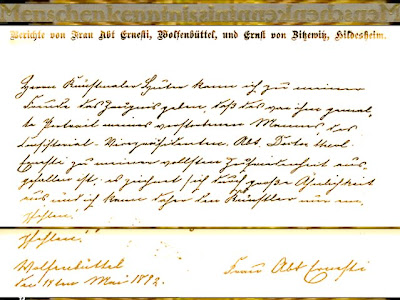 Berichte von Frau Abt Ernesti, Wolfenbüttel, und Ernst von Bitzewitz, Hildesheim.
Herrn Kunstmaler Hüter kann ich zu meiner
Freude das Zeugnis geben, daß das von ihm gemal-
te Portrait meines verstorbenen Mannes, des
Consistorial-Vizepräsidenten, Abt, Doctor theol.
Ernesti zu meiner vollsten Zufriedenheit aus-
gefallen ist, es zeichnet sich durch große Ähnlichkeit
aus und ich kann daher den Künstler nur em-
pfehlen!
pfehlen!
Wolfenbüttel
den 14ten Mai 1892.
Frau Abt Ernesti